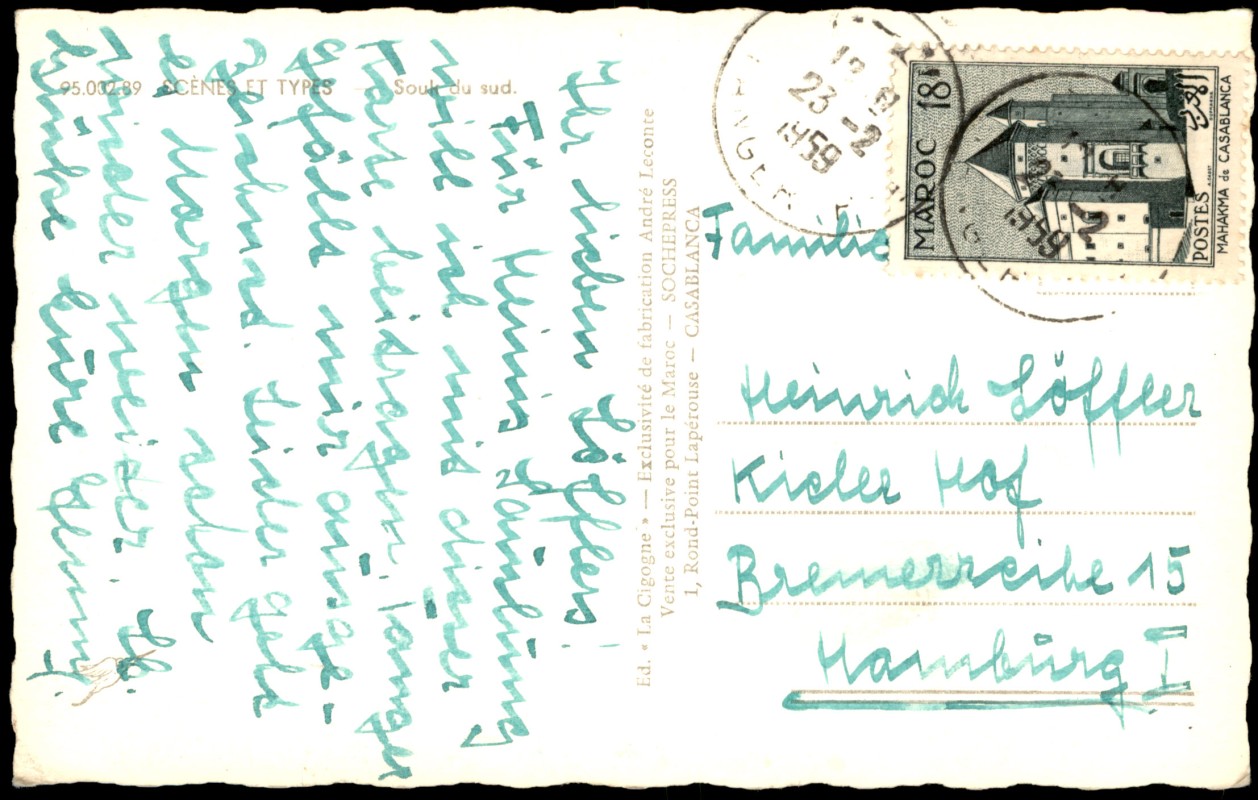 95.002.89 SCÈNES ET TYPES — Souk du sud.
Ihr lieben Löfflers!
Für Heinis Samlung
will ich mit dieser
Karte beitragen. Tanger
gefällt mir ausge-
zeichnet. Leider geht
es Morgen schon
wieder weiter.
Grüße Eure
Ed. « La Cigogne » — Exclusivité de fabrication André Leconte
Vente exclusive pour le Maroc — SOCHEPRESS
1, Rond-Point Lapérouse — CASABLANCA
TANGER
23 -2
1959
MAROC 18F
POSTES
MAHAKMA de CASABLANCA
1959
Familie
Heinrich Löffler
Kieler Hof
Bremerreihe 15
Hamburg I